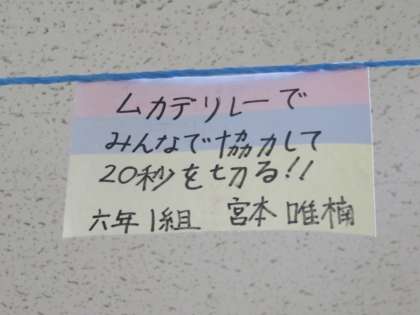 ムカデリレーで
みんなで協力して
20秒を切る!!
六年1組 宮本 唯楠